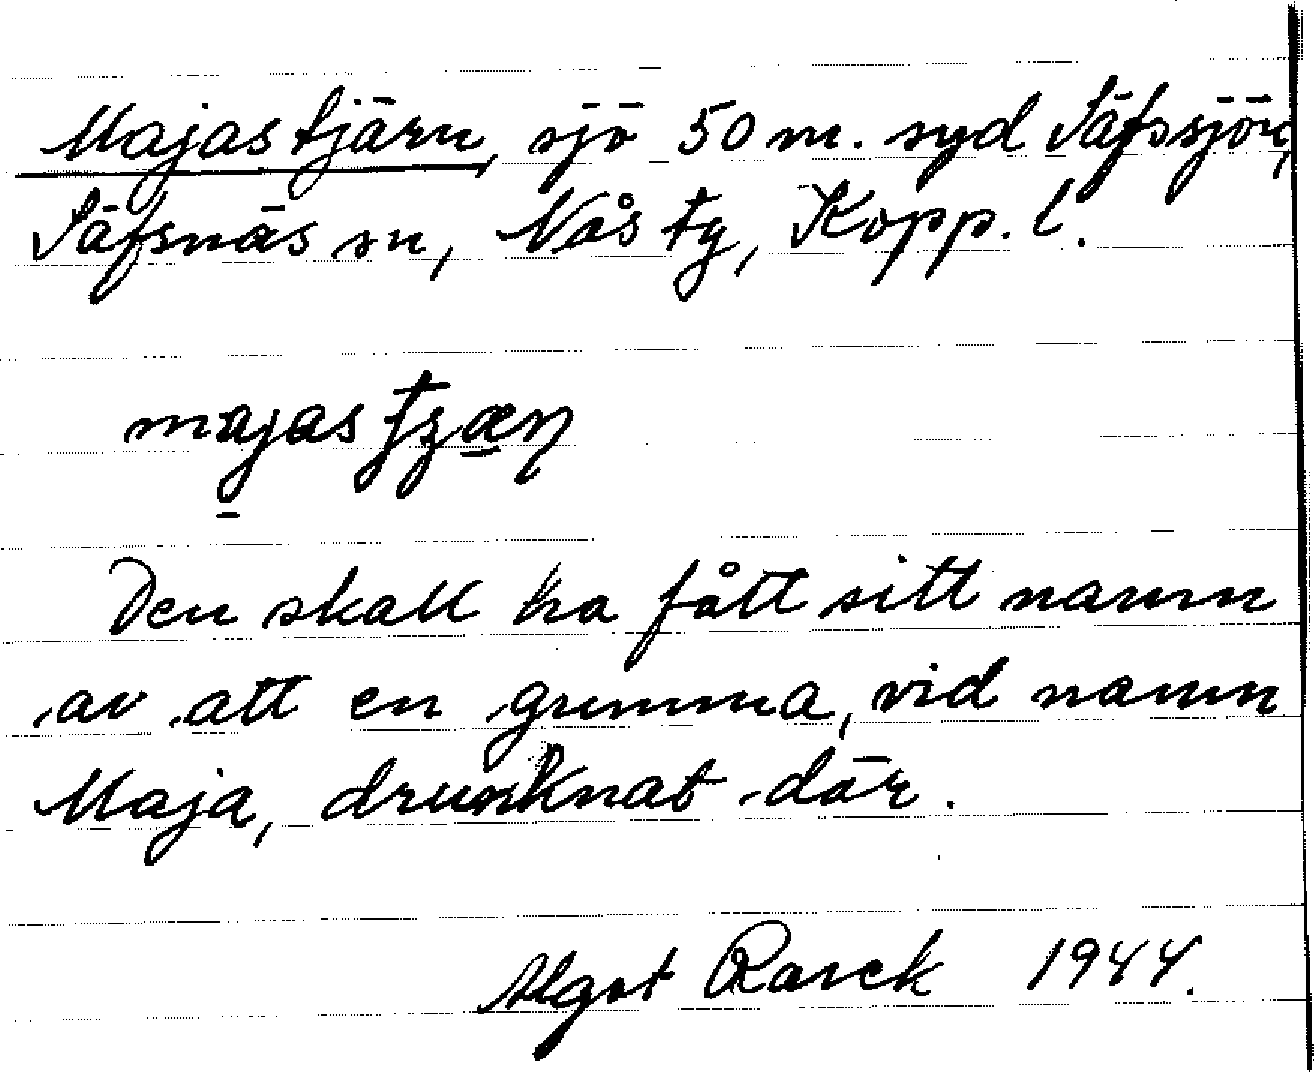 Majastjärn, sjö 50 m. syd Säfssjön,
Säfsnäs sn, Nås tg, Kopp. l.
Den skall ha fått sitt namn
av att en gumma, vid namn
Maja, drunknat där.
Algot Rarck 1944.